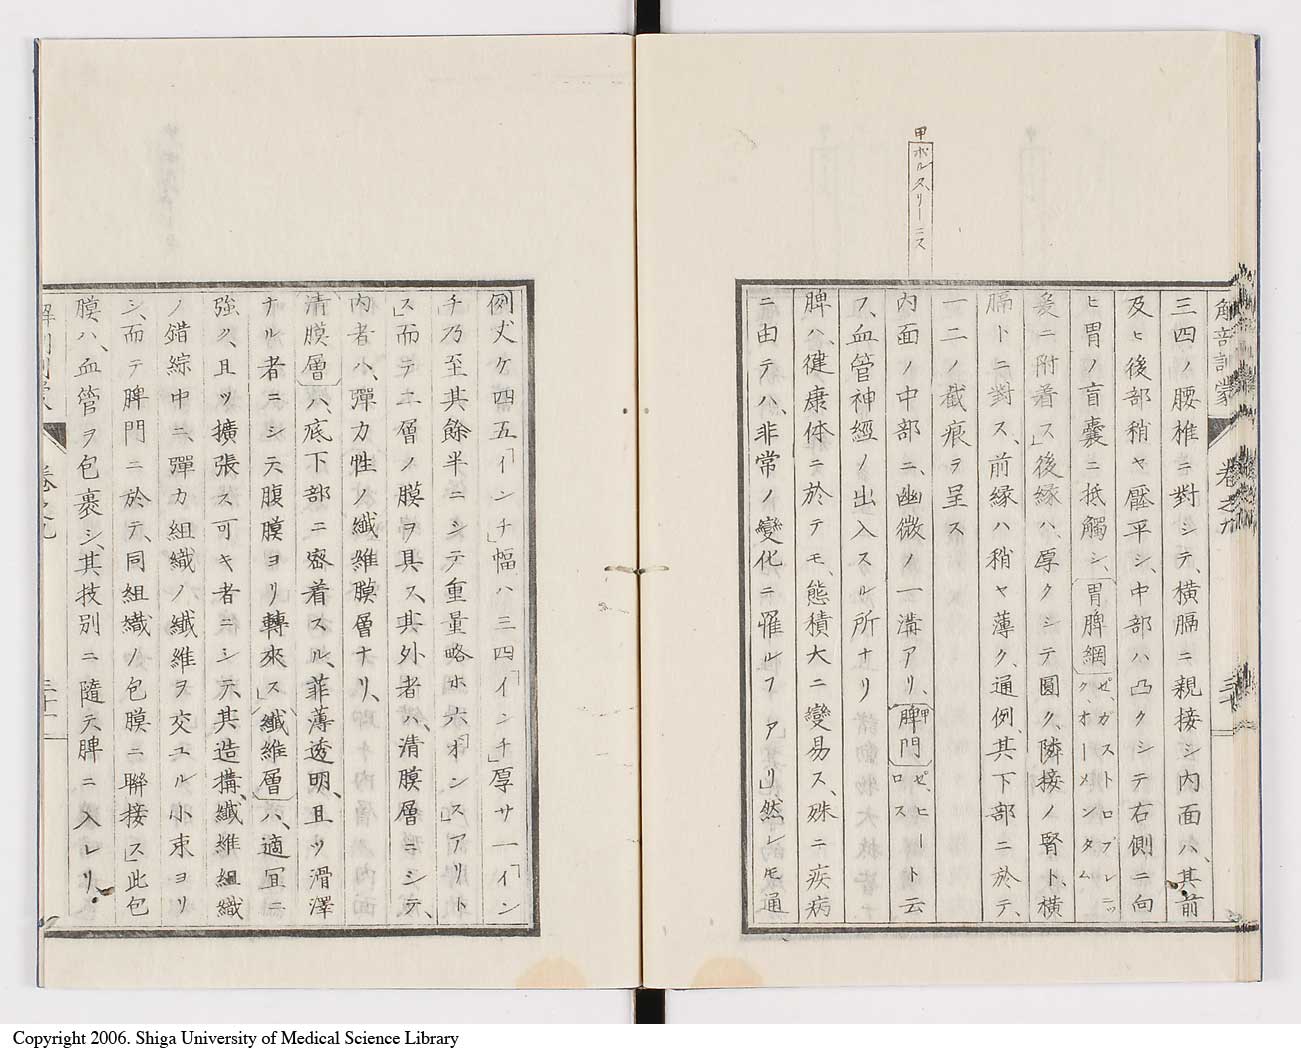 解剖訓蒙 卷之九 三十
甲 ポルタ、リーニス
三四ノ腰椎ニ對シテ、橫膈ニ親接シ内面ハ、其前
及ヒ後部稍ヤ壓平シ、中部ハ凸クシテ右側ニ向
ヒ胃ノ盲囊ニ抵觸シ、胃脾網ゼ、ガストロプレニックオーメンタム
爰ニ附着ス」後緣ハ、厚クシテ圓ク、隣接ノ腎ト、橫
膈トニ對ス、前緣ハ稍ヤ薄ク、通例、其下部ニ於テ、
一二ノ截痕ヲ呈ス
内面ノ中部ニ、幽微ノ一溝アリ、脾門甲ゼ、ヒーロスト云
フ、血管神經ノ出入スル所ナリ
脾ハ、健康体ニ於テモ、態積大ニ變易ス、殊ニ疾病
ニ由テハ、非常ノ變化ニ罹ルヿアリ」然レモ通
例丈ケ四五「インチ」幅ハ三四「インチ」厚サ一「イン
チ」乃至其餘半ニシテ重量略ホ六「オンス」アリト
ス」而テ二層ノ膜ヲ具ス、其外者ハ、清膜層ニシテ、
内者ハ、彈力性ノ纖維膜層ナリ、
清膜層ハ、底下部ニ密着スル、菲薄透明、且ツ滑澤
ナル者ニシテ腹膜ヨリ轉來ス」纖維層ハ、適宜ニ
強ク、且ツ擴張ス可キ者ニシテ、其造構、纖維組織
ノ錯綜中ニ、彈力組織ノ纖維ヲ交ユル小束ヨリ
シ、而テ脾門ニ於テ、同組織ノ包膜ニ聯接ス」此包
膜ハ、血管ヲ包裹シ、其技別ニ隨テ脾ニ入レリ、
解剖訓蒙 卷之九 三十一
Copyright 2006. Shiga University of Medical Science Library